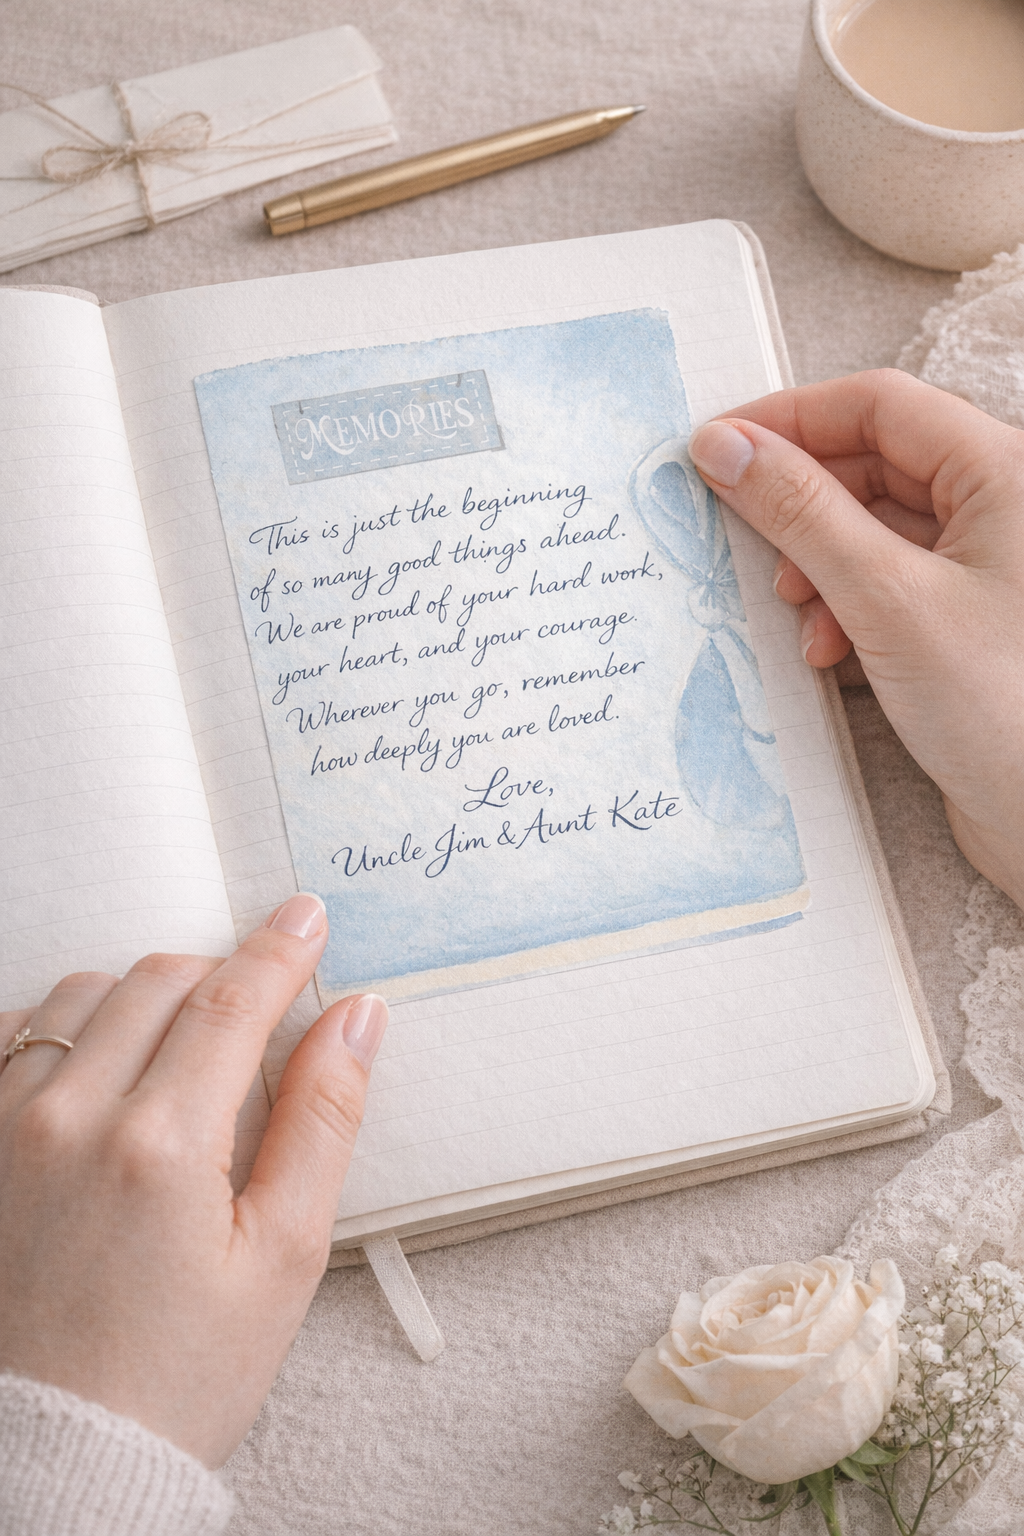 MEMORIES
This is just the beginning
of so many good things ahead.
We are proud of your hard work,
your heart, and your courage.
Wherever you go, remember
how deeply you are loved.
Love,
Uncle Jim & Aunt Kate